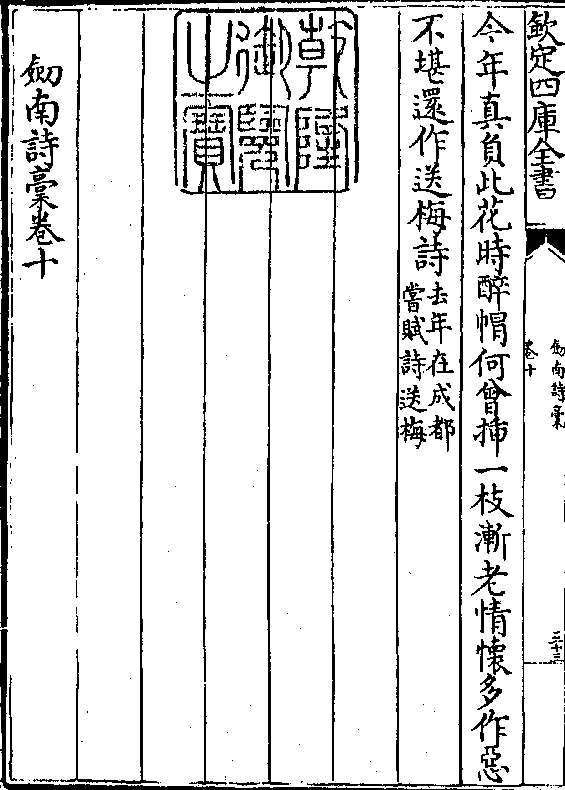 欽定四庫全書
劒南詩稾
卷十
三十三
今年真負此花時醉帽何曾揷一枝漸老情懷多作惡
不堪還作送梅詩
去年在成都
嘗賦詩送梅
乾隆
御覽
之寶
劒南詩稾卷十